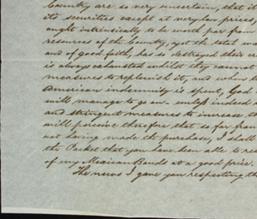 Country are so very uncertain, that i
its securities except at very low prices,
ought intrinsically to be worth par from
resources of the Country, yet the total wa
and of good faith, has so destroyed their cr
is always exhausted whilst they cannot
measures to replenish it, and when the
American indemnity is spent, God
will manage to go on. unless indeed
and stringent measures to increase th
will perceive therefore that so far from
not having made the purchase, I shall
the Packet that you have been able to
of my Mexican Bonds at a good price.
The news I gave you respecting th